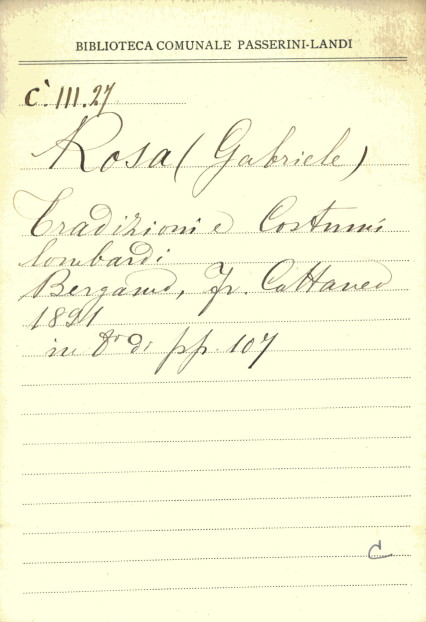 BIBLIOTECA COMUNALE PASSERINI-LANDI
C. III. 27
Rosa (Gabriele)
Tradizioni e Costumi
lombardi
Bergamo, Fr. Cattaneo
1891
in 8° di pp. 107
C